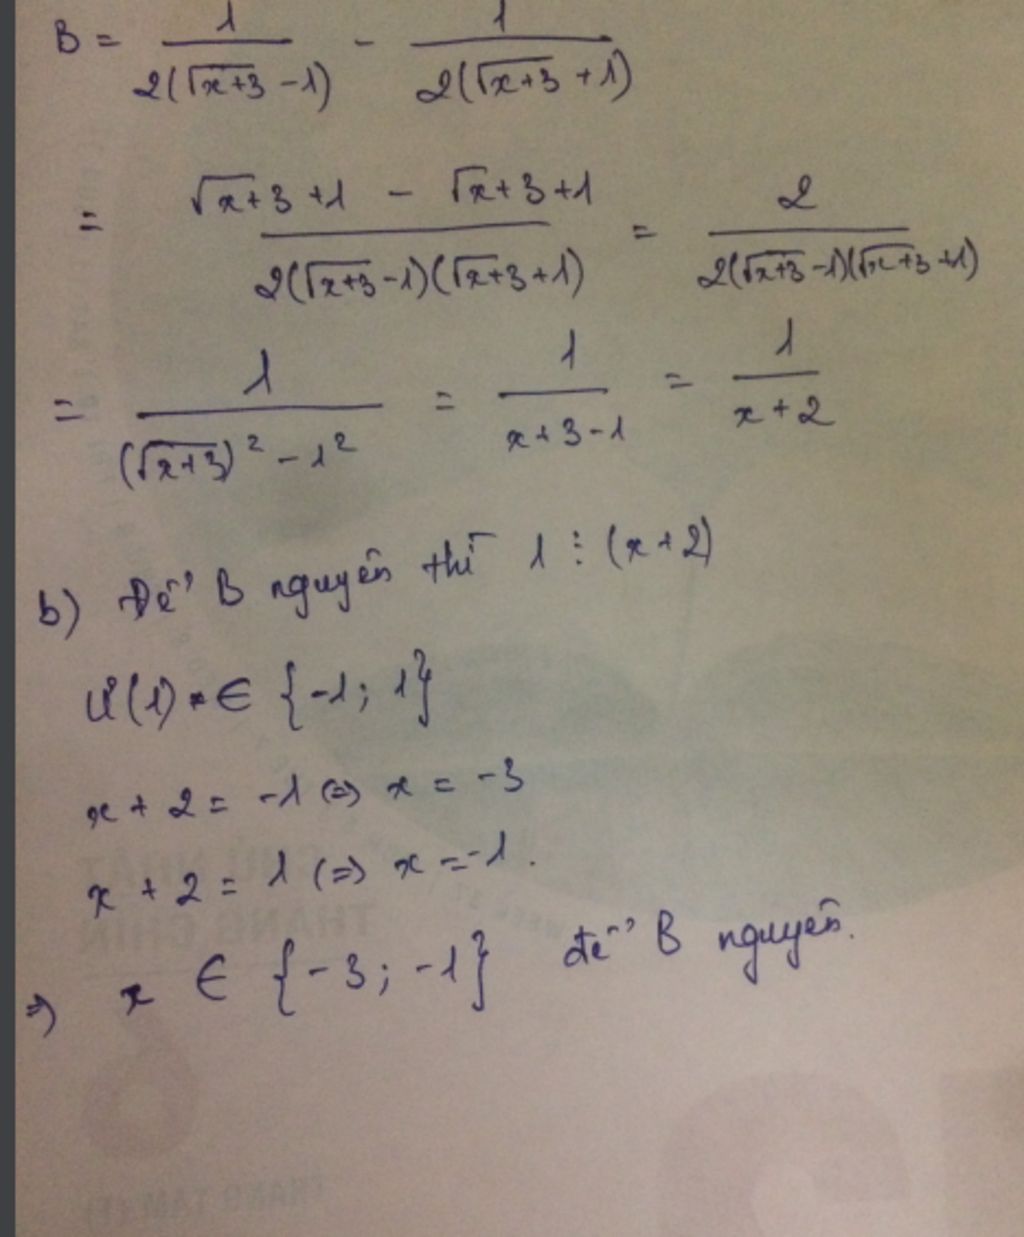 B = 1/(2(√(x+3) -1)) - 1/(2(√(x+3) +1))
= (√x+3 +1 - √x+3 +1)/(2(√(x+3) -1)(√x+3 +1)) = 2/(2(√(x+3) -1)(√(x+3) +1))
= 1/((√(x+3))² - 1²) = 1/(x+3-1) = 1/(x+2)
b) Để B nguyên thì 1 ⋮ (x+2)
Ư(1) ∈ {-1; 1}
x + 2 = -1 (=> x = -3
x + 2 = 1 (=> x = -1.
=> x ∈ {-3; -1} để B nguyên.